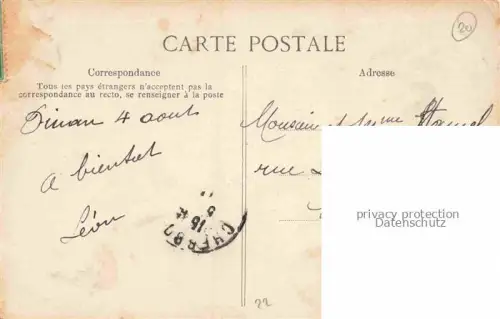 20
CARTE POSTALE
Correspondance
Tous les pays étrangers n'acceptent pas la
correspondance au recto, se renseigner à la poste
Dinan 4 aout
a bientot
Léon
CHERBO
Adresse
Monsieur et Mme
rue
privacy protection
Datenschutz
22